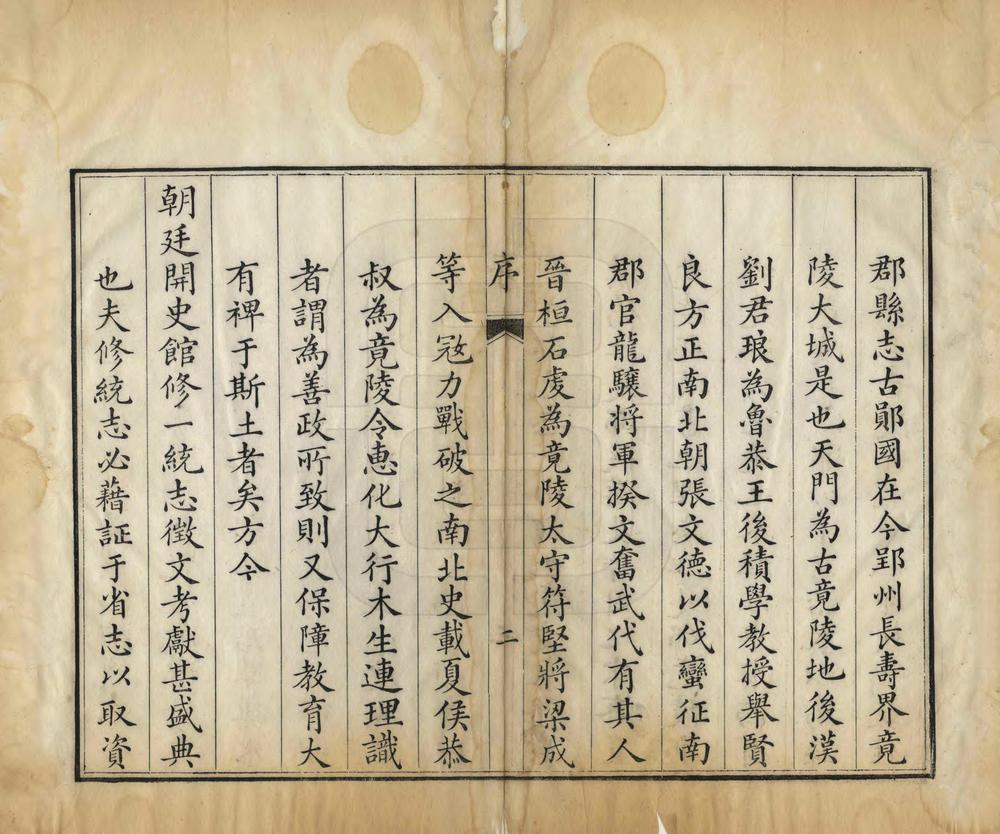 郡縣志古鄖國在今郢州長壽界竟
陵大城是也天門為古竟陵地後漢
劉君琅為魯恭王後積學教授舉賢
良方正南北朝張文德以伐蠻征南
郡官龍驤將軍揆文奮武代有其人
晉桓石虔為竟陵太守符堅將梁成
序
二
等入冦力戰破之南北史載夏侯恭
叔為竟陵令惠化大行木生連理識
者謂為善政所致則又保障教育大
有裨于斯土者矣方今
朝廷開史館修一統志徵文考獻甚盛典
也夫修統志必藉証于省志以取資